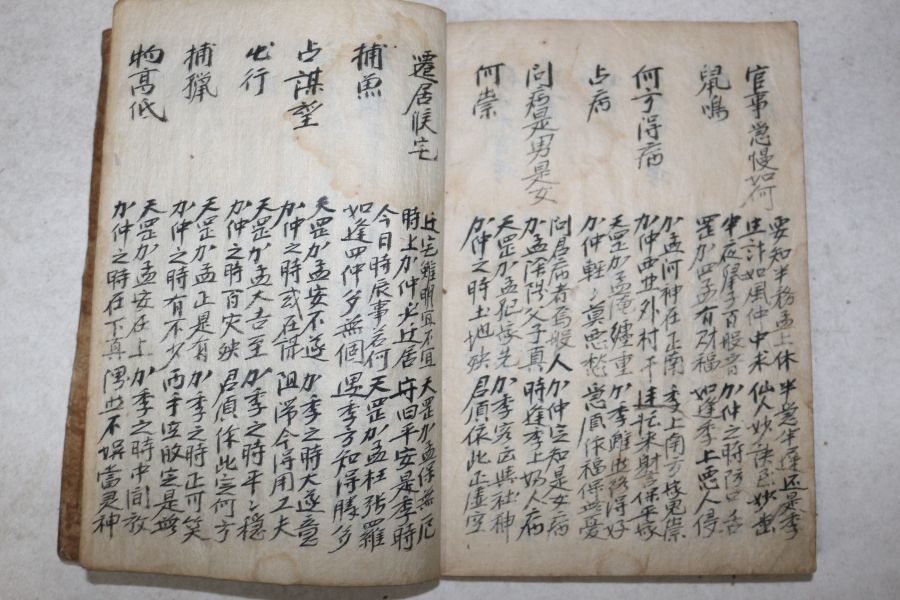 官事急慢如何
要知事務孟上休 半是半遲还是季
生計如風仲中求 仙人妙訣玄妙
鼠鳴
半夜鼠子百般音 加仲之時防口舌
罡加四孟有財福 如逢季上惡人侵
何方得病
加孟河神在正南 季上南方家鬼崇
加仲西北外村干 連托米財保平
占病
天罡加孟庵纏重 加季雖也疾得好
加仲輕〻莫愁 為愿作福保無憂
问病是男是女
问君病者為般人 加仲定知是女病
加孟陰陽父子真 時逢季上奶人病
何崇
天罡加孟犯家先 加季客亡與社神
加仲之時土地殃 君須依此正虛空
遷居候宅
迁宅雖明宜不宜 天罡加孟保無厄
時上加仲必迁居 守旧平安是季時
捕魚
今日時辰事若何 天罡加孟枉張羅
如逢四仲多無個 四季方知得勝多
占謀望
天罡加孟安不遂 加季之時大遂意
加仲之時或在得 阻滯今得用工夫
出行
天罡加孟大吉至 加季之時平〻穩
加仲之時百灾殃 君須依此定何方
捕猟
天罡加孟正是有 加季之時正可笑
加仲之時有不少 两手空收定是無
物高低
天罡加孟安在上 加季之時中间放
加仲之時在下真 不候當是神